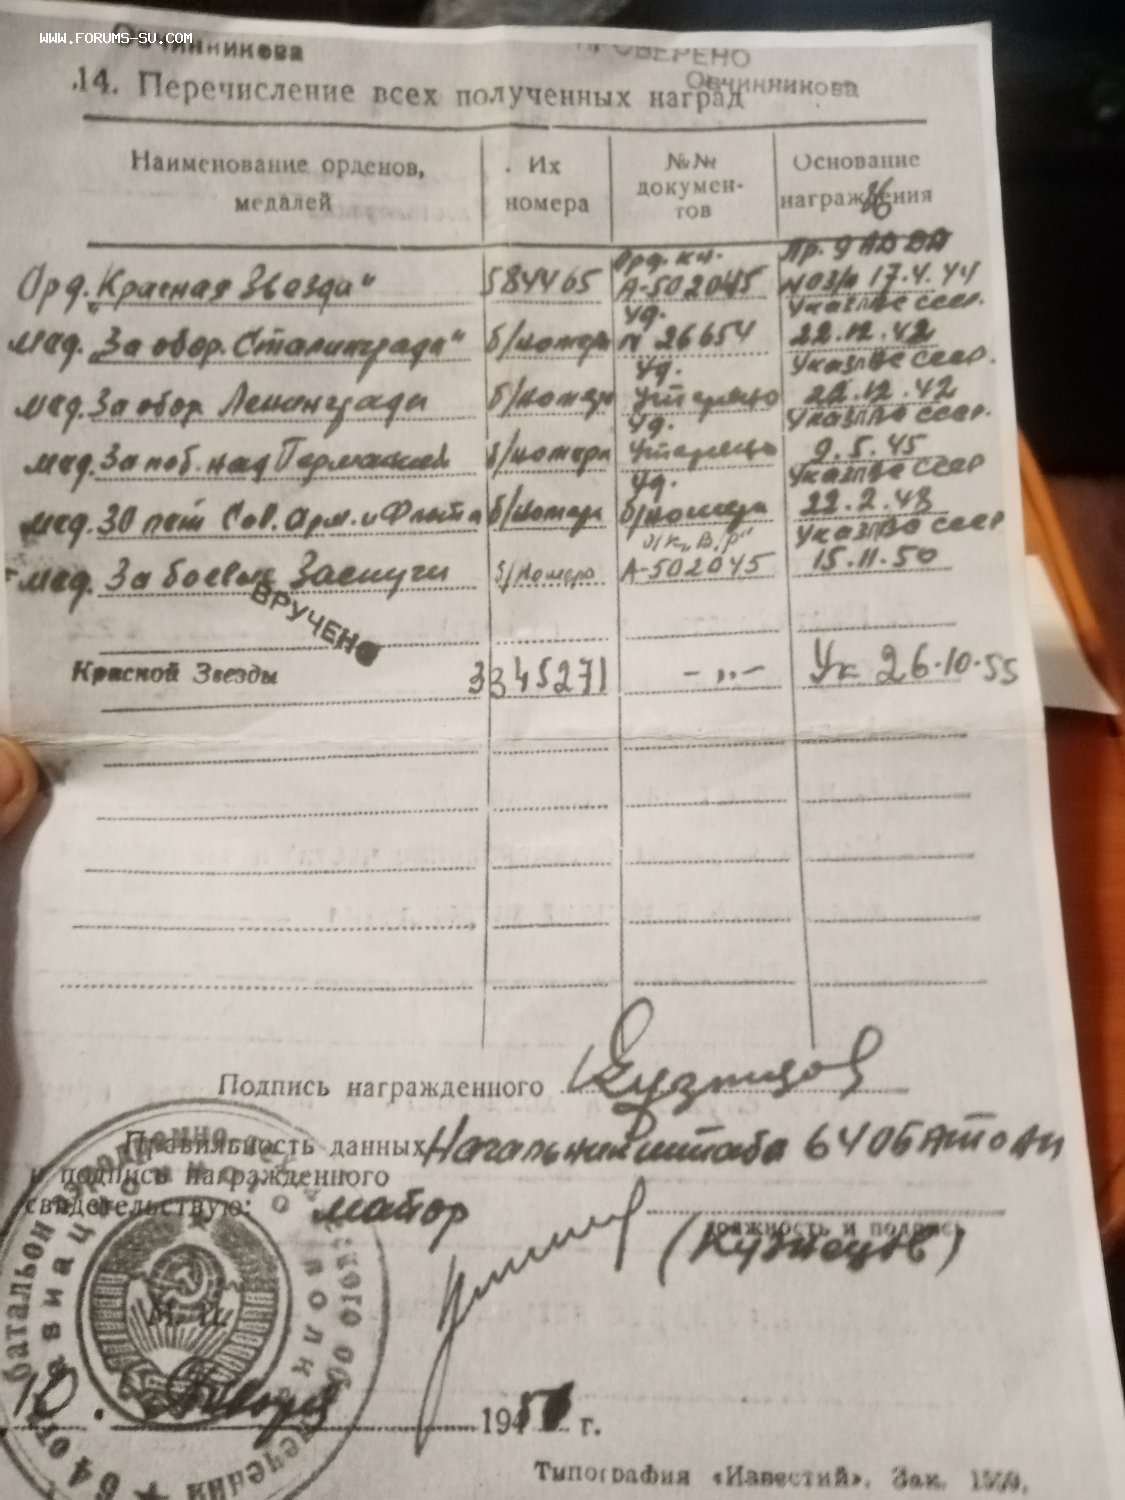 www.forums-su.com
Овчинникова
ПРОВЕРЕНО
Овчинникова
14. Перечисление всех полученных наград
Наименование орденов, медалей
Их номера
№№ документов
Основание награждения
Орд. кн.
Пр. 9 АД ДД
Орд. „Красная Звезда" 584465 А-502045 N 03/н 17.4.44
Уд. Указ ПВС СССР.
Мед. „За обор. Сталинграда" б/номера N 26654 22.12.42
Уд. Указ ПВС СССР.
мед. За обор. Ленинграда б/номера утеряно 22.12.42
Уд. Указ ПВС СССР.
мед. За поб. над Германией б/номера Утеряно 9.5.45
Уд. Указ ПВС СССР
мед. 30 лет Сов. Арм. и Флота б/номера б/номера 22.2.48
Указ ПВС СССР
мед. За боевые Заслуги б/номера А-502045 15.11.50
ВРУЧЕНО
Красной Звезды 3345271 -„- Ук 26.10.55
Подпись награжденного Кузнецов
Правильность данных Начальник штаба 640 БАТО АП
и подпись награжденного
свидетельствую: майор
должность и подпись
(Кузнецов)
М. П.
10. Января 1951 г.
Типография «Известий». Зак.